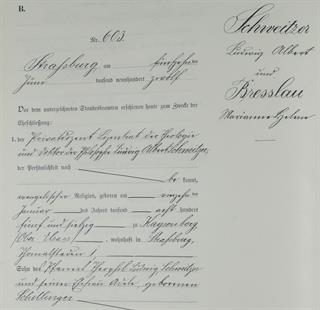 B.
Nr. 603.
Straßburg am fünfzehnten
Juni tausend neunhundert zwölf
Vor dem unterzeichneten Standesbeamten erschienen heute zum Zwecke der
Eheschließung:
1. der Privatdozent Lizentiat der Theologie
und Doktor der Philosophie Ludwig Albert Schweitzer,
der Persönlichkeit nach
be kannt,
evangelischer Religion, geboren am vierzehnten
Januar des Jahres tausend acht hundert
fünf und siebzig zu Kaysersberg
(Ober Elsass), wohnhaft in Straßburg,
Thomasstaden 1
Sohn des Pfarrers Ludwig Schweitzer
und seiner Ehefrau Adele, geborenen
Schillinger
Schweitzer
Ludwig Albert
und
Bresslau
Marianne Helene